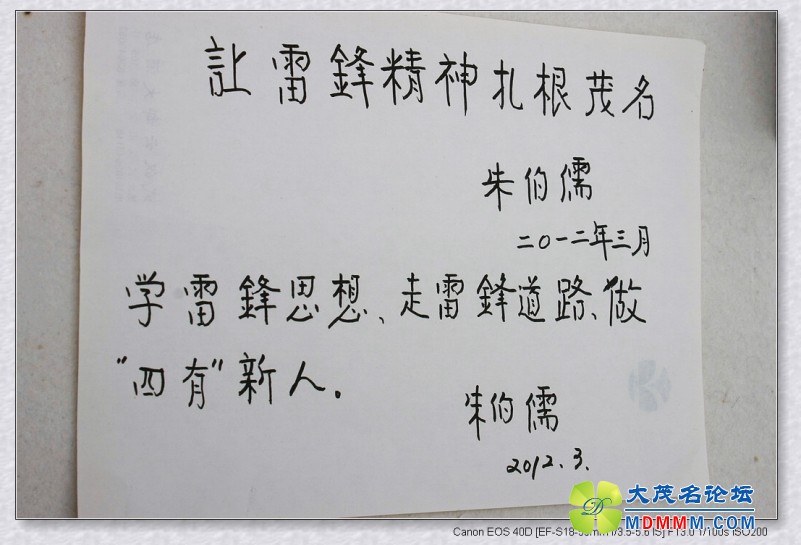 让雷鋒精神扎根茂名
朱伯儒
二〇一二年三月
学雷鋒思想、走雷鋒道路、做
“四有”新人.
朱伯儒
2012.3.
大茂名论坛
MDMMM.COM
Canon EOS 40D [EF-S18-55mm f/3.5-5.6 IS] F13.0 1/100s ISO200